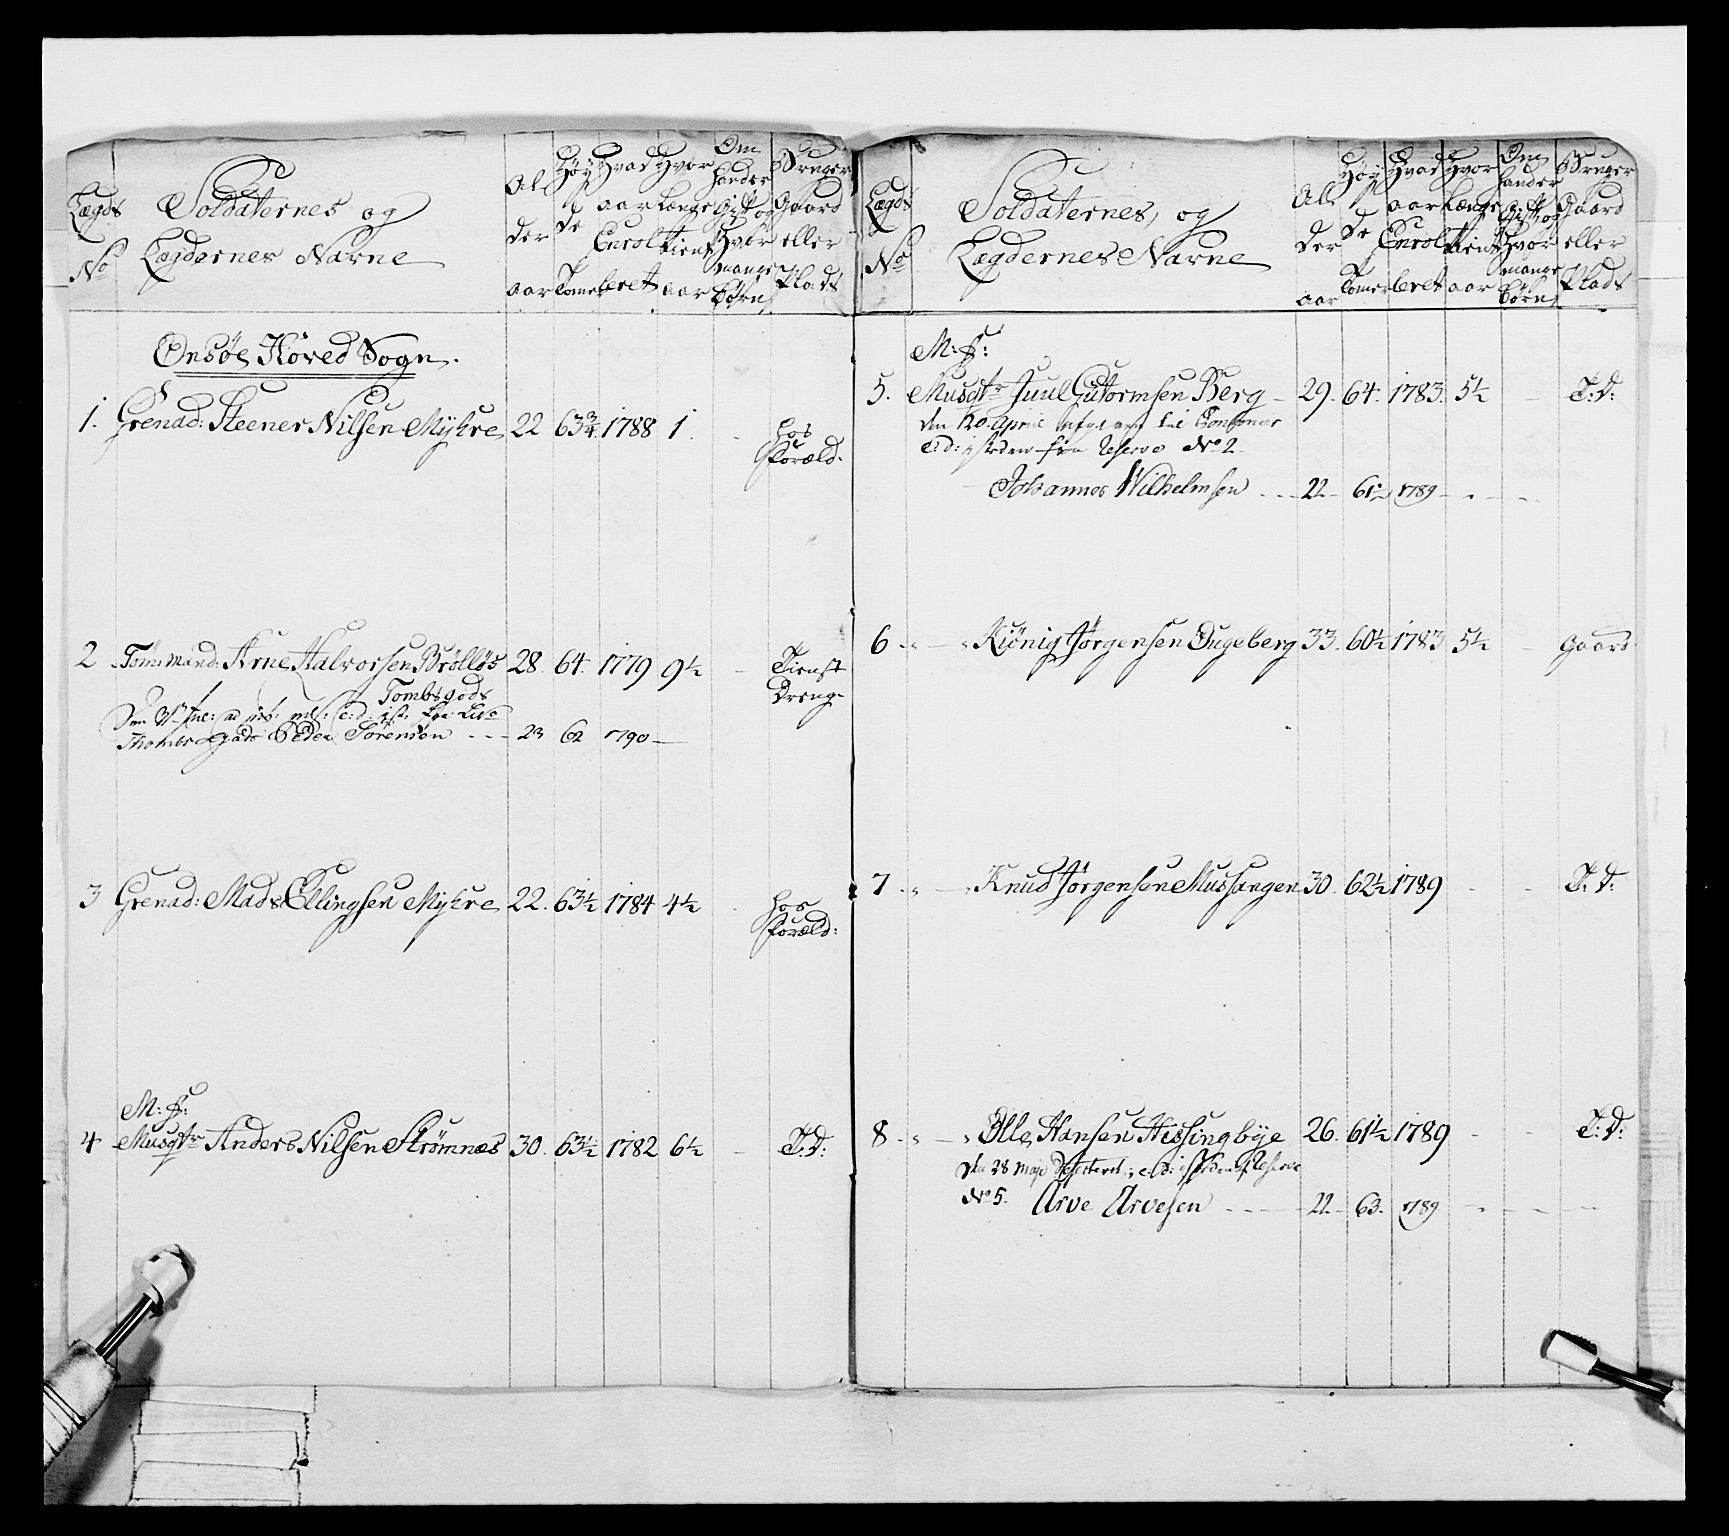 Lægds No
Soldaternes og Lægdernes Navne
Al- der aar
Høy- de Tomer
Hvad aar Enrolleret
Hvor længe tient aar
Om hand er Gift og Hvor mange Børn
Bruger Gaard eller Plads
Onsøe Hoved Sogn.
1. Grenad: Steener Nilsen Myhre 22 63¾ 1788 1. - hos
Foræld:
2 Tømmand: Arne Halvorsen Brölløs 28. 64. 1779 9½ - Tienst
Tombsgods Dreng
Thombs gods Peder Sørensen - - - 23 62 1790 -
3 Grenad: Mads Ellingsen Myhre 22. 63½ 1784 4½ - hos
Foræld:
M: S:
4 Musqtr Anders Nilsen Strømnæs 30. 63½ 1782 6½ - T: D:
Lægds No
Soldaternes, og Lægdernes Navne
Al- der aar
Høy- de Tomer
Hvad aar Enrolleret
Hvor længe tient aar
Om hander Gift og Hvor mange børn
Bruger Gaard eller Plads
M: S:
5. Musqtr Juul Guttormsen Berg - 29. 64. 1783. 5½ - T: D:
den 20. April
E: d: isteden fra Reserve No 2.
Johannes Wilhelmsen - - - 22 - 61½ 1789 - - -
6 - " - " Kiönig Jørgensen Ongeberg 33. 60½ 1783. 5½ - Gaard
7 - " - " Knud Jørgensen Mussangen 30. 62½ 1789 - - T: D:
8 - " - " Olle Hansen Hissingbye 26. 61½ 1789 - - T: D:
den 28 Maji Deserteret, e: d: isteden Reserve
No 5. Arve Arvesen - - - 22. 63. 1789 - - -